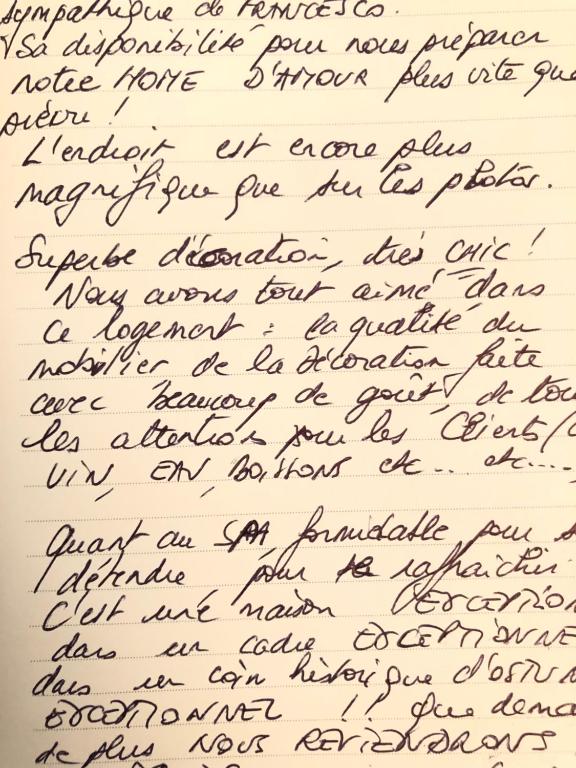 sympathique de FRANCESCO.
Sa disponibilité pour nous préparer
notre HOME D'AMOUR plus vite que
prévu !
L'endroit est encore plus
magnifique que sur les photos.
Superbe décoration, très CHIC !
Nous avons tout aimé dans
ce logement : la qualité du
mobilier de la décoration faite
avec beaucoup de goût, de tou
les attentions pour les Clients (
VIN, EAU, BOISSONS etc... etc....
Quant au SPA formidable pour s
détendre, pour se rafraichir
C'est une maison EXCEPTION
dans un cadre EXCEPTIONNE
dans un coin historique d'OSTUN
EXCEPTIONNEL !! Que dema
de plus NOUS REVIENDRONS